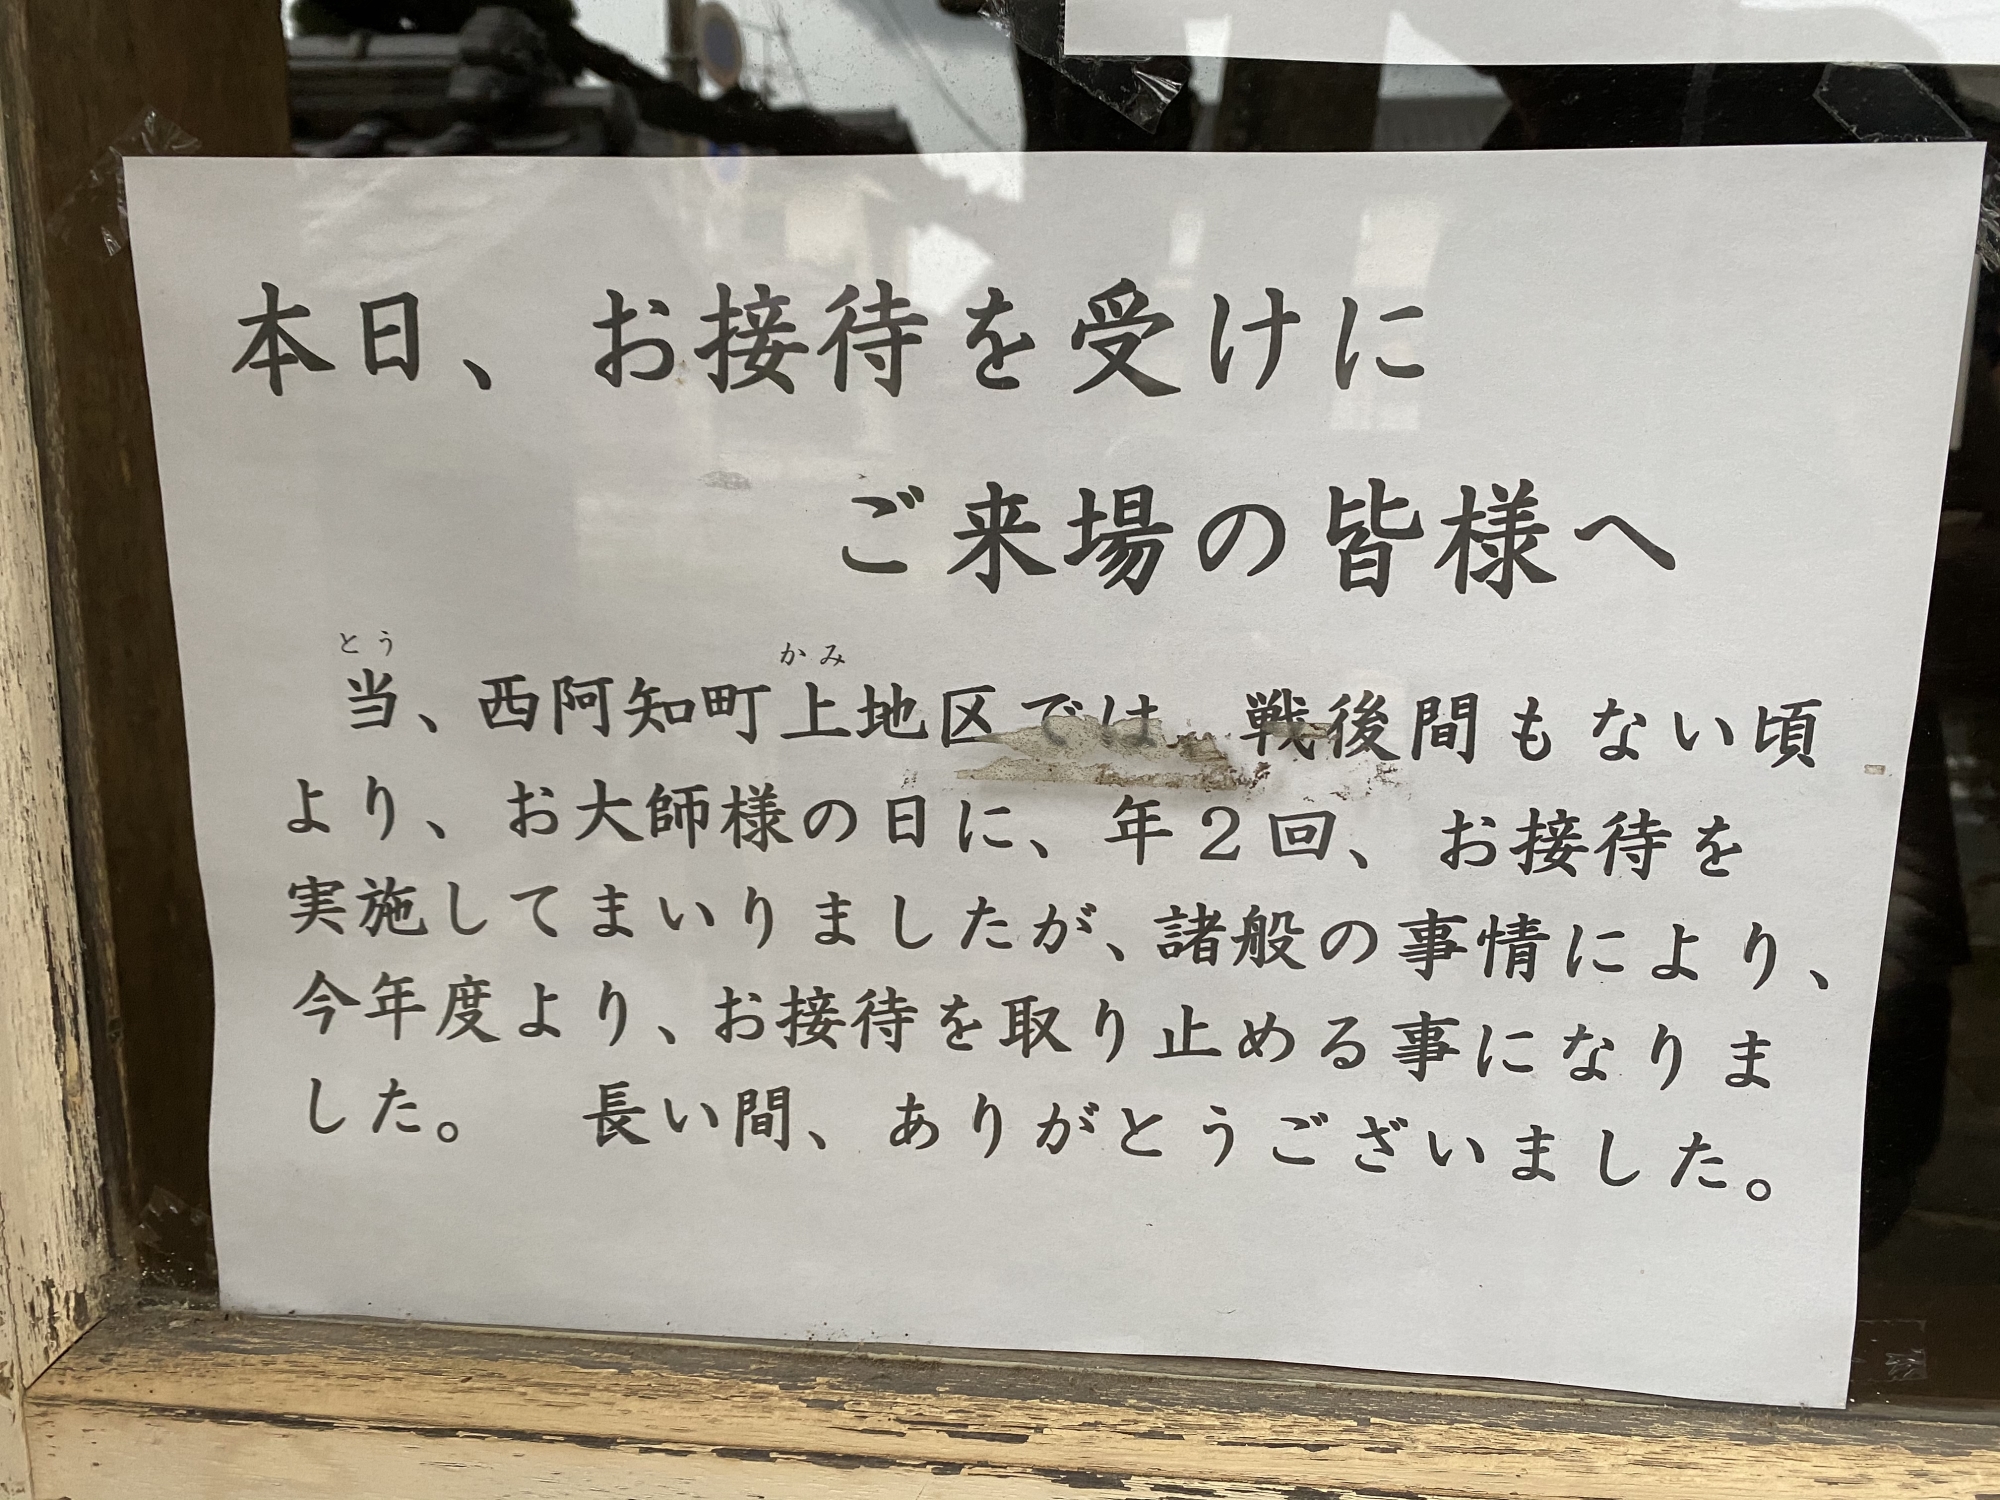 本日、お接待を受けに
ご来場の皆様へ
とう かみ
当、西阿知町上地区では 戦後間もない頃
より、お大師様の日に、年２回、お接待を
実施してまいりましたが、諸般の事情により、
今年度より、お接待を取り止める事になりま
した。 長い間、ありがとうございました。